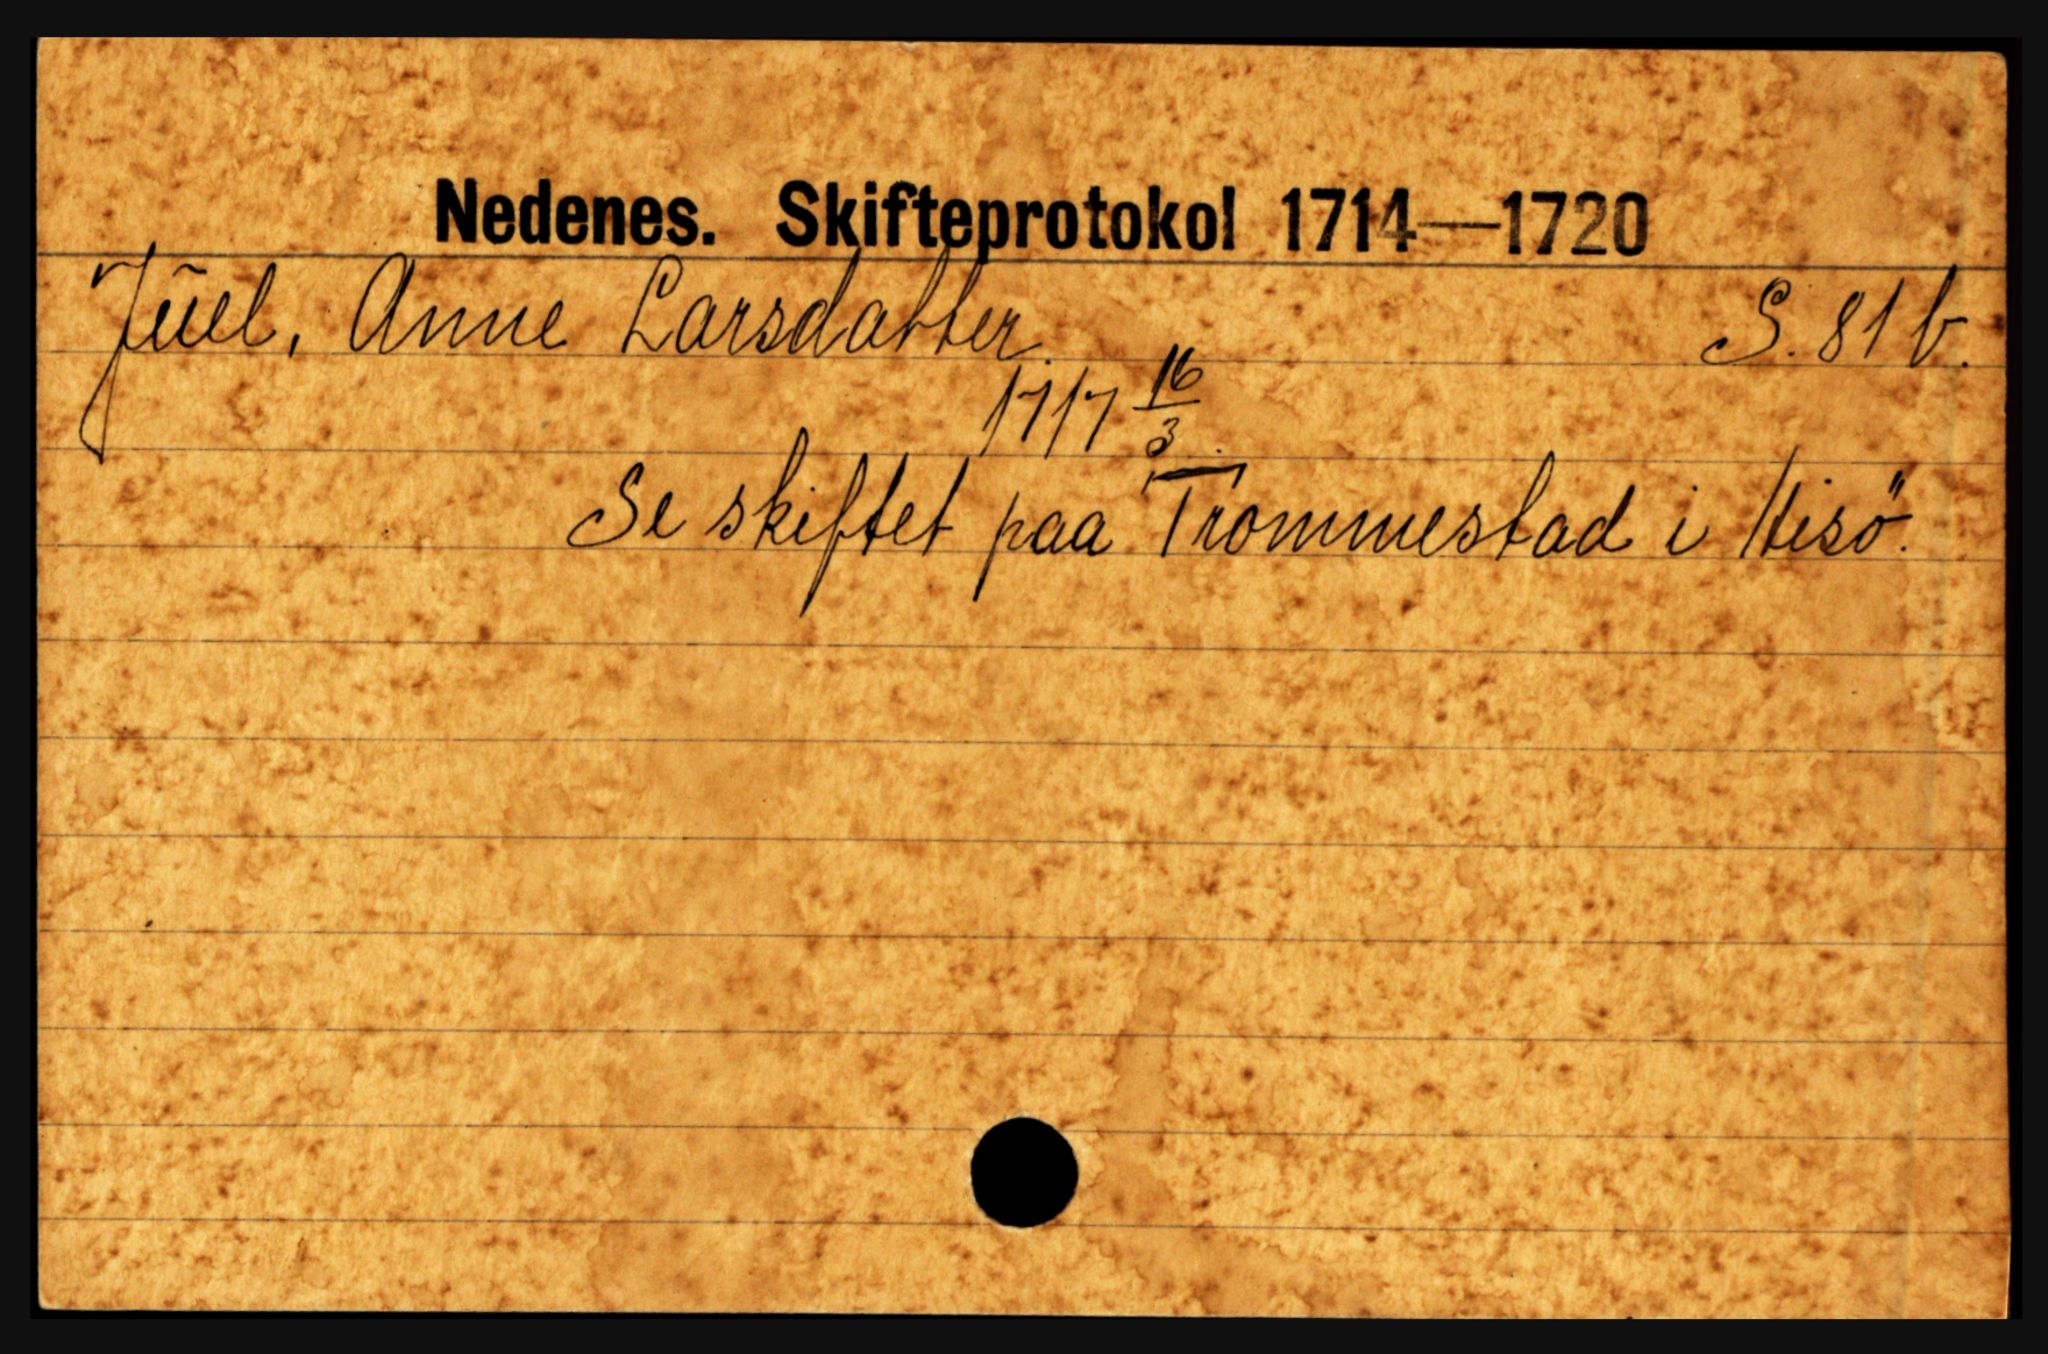 Nedenes. Skifteprotokol 1714—1720
Juel, Anne Larsdatter. S. 81 b.
1717 16/3.
Se skiftet paa Trommestad i Hisö.